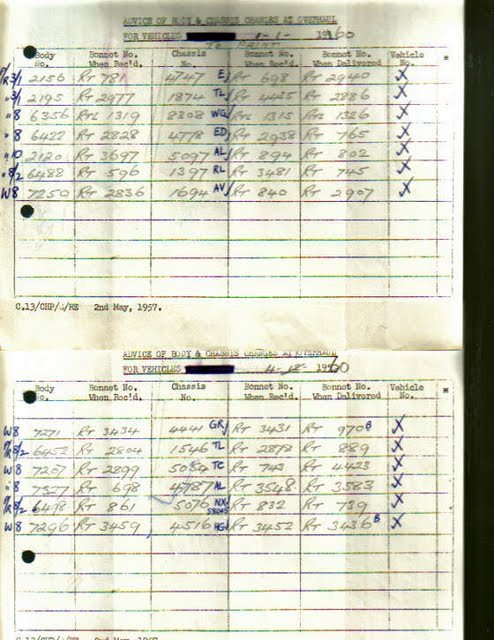 ADVICE OF BODY & CHASSIS CHANGES AT OVERHAUL
FOR VEHICLES 1-1- 1960
Body No. Bonnet No. When Rec'd. Chassis No. Bonnet No. When Rec'd. Bonnet No. When Delivered Vehicle No. *
3/1 2156 RT 781 4747 E RT 698 RT 2940 X
3/1 2195 RT 2977 1874 TL RT 4425 RT 2886 X
"8 6356 RTL 1319 8308 WG RTL 1315 RTL 1326 X
"8 6422 RT 2828 4778 ED RT 2938 RT 765 X
"10 2120 RT 3697 5097 AL RT 894 RT 802 X
8/2 6488 RT 596 1397 RL RT 3481 RT 745 X
W8 7250 RT 2836 1694 AV RT 840 RT 2907 X
C.13/CHP/ /RE 2nd May, 1957.
ADVICE OF BODY & CHASSIS CHANGES AT OVERHAUL
FOR VEHICLES 1960
Body No. Bonnet No. When Rec'd. Chassis No. Bonnet No. When Rec'd. Bonnet No. When Delivered Vehicle No. *
W8 7271 RT 3434 4441 GR RT 3431 RT 970 B X
8/2 6452 RT 2804 1546 TL RT 2873 RT 889 X
W8 7207 RT 2899 5084 TC RT 743 RT 4423 X
"8 7327 RT 698 4787 AL RT 3548 RT 3583 X
8/2 6498 RT 861 5076 NX RT 832 RT 739 X
W8 7296 RT 3459 4516 HG RT 3452 RT 3436 B X